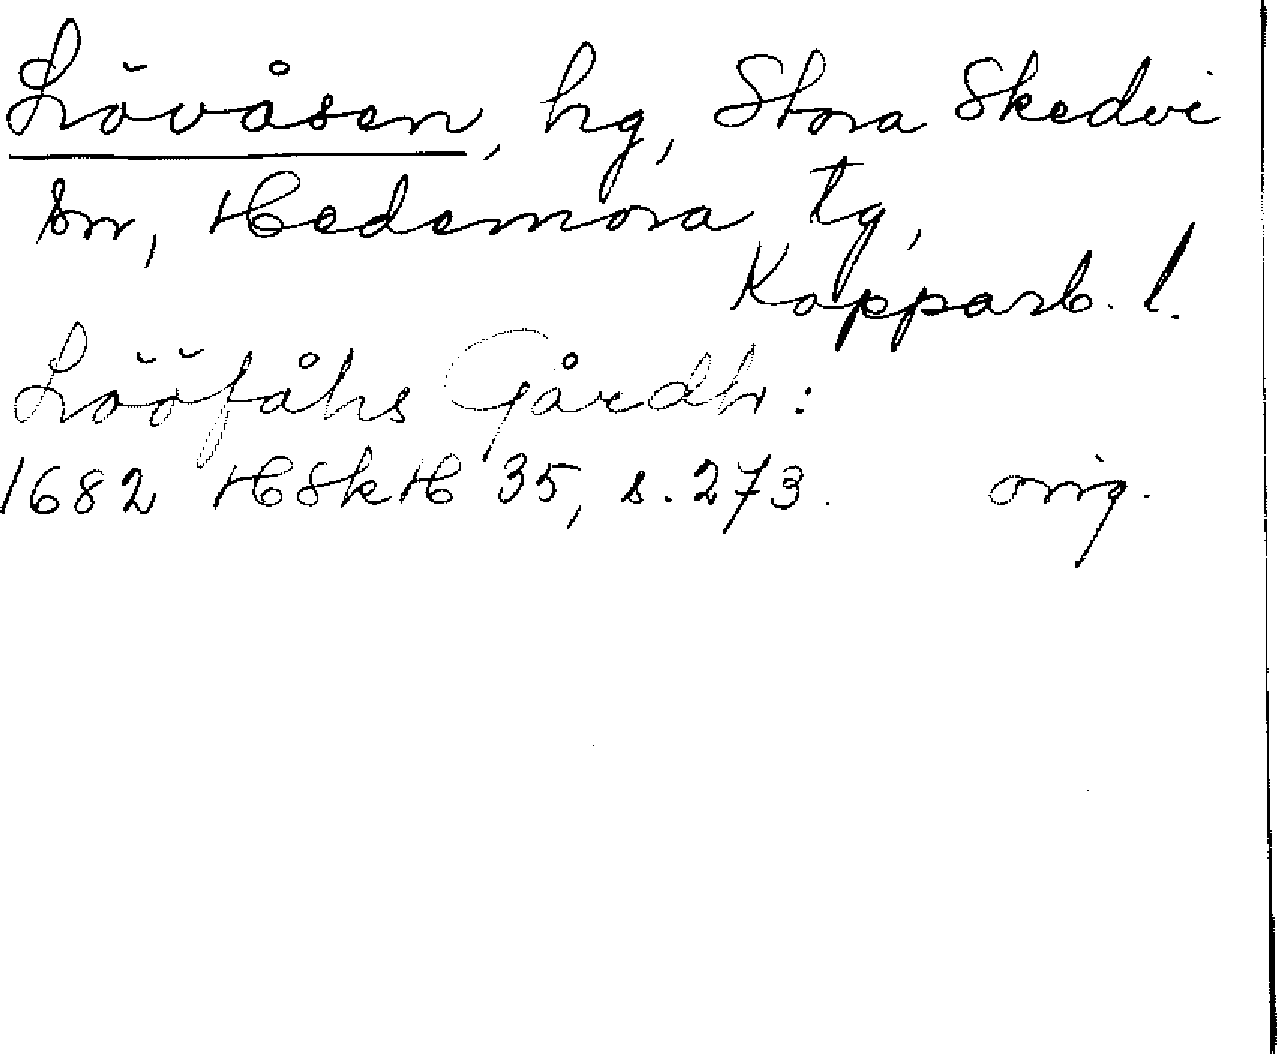 Lövåsen, hg, Stora Skedvi
sn, Hedemora tg,
Kopparb. l.
Lööfåhs Gårdh:
1682 HSkH 35, s. 273. orig.